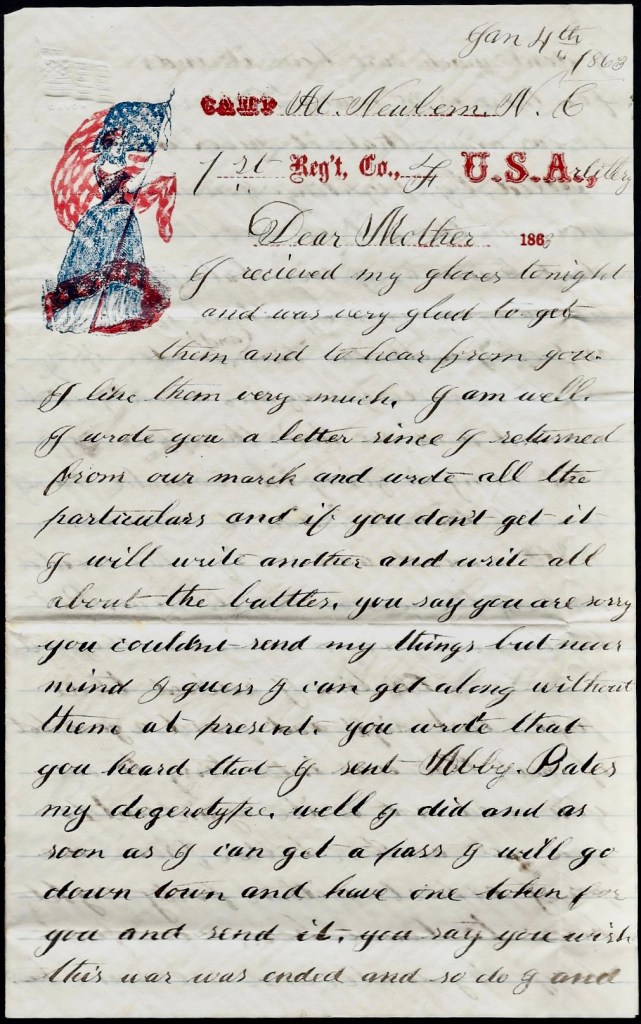 Jan 4th
1863
CAMP At. Newbern. N. C
1st Reg't, Co., F U.S.A., rtillery
Dear Mother 1863
I recieved my gloves tonight
and was very glad to get
them and to hear from you.
I like them very much. I am well.
I wrote you a letter since I returned
from our march and wrote all the
particulars and if you don't get it
I will write another and write all
about the battles. you say you are sorry
you couldnt send my things but never
mind I guess I can get along without
them at present. you wrote that
you heard that I sent Abby. Bates
my degerotype. well I did and as
soon as I can get a pass I will go
down town and have one token for
you and send it. you say you wish
this war was ended and so do I and